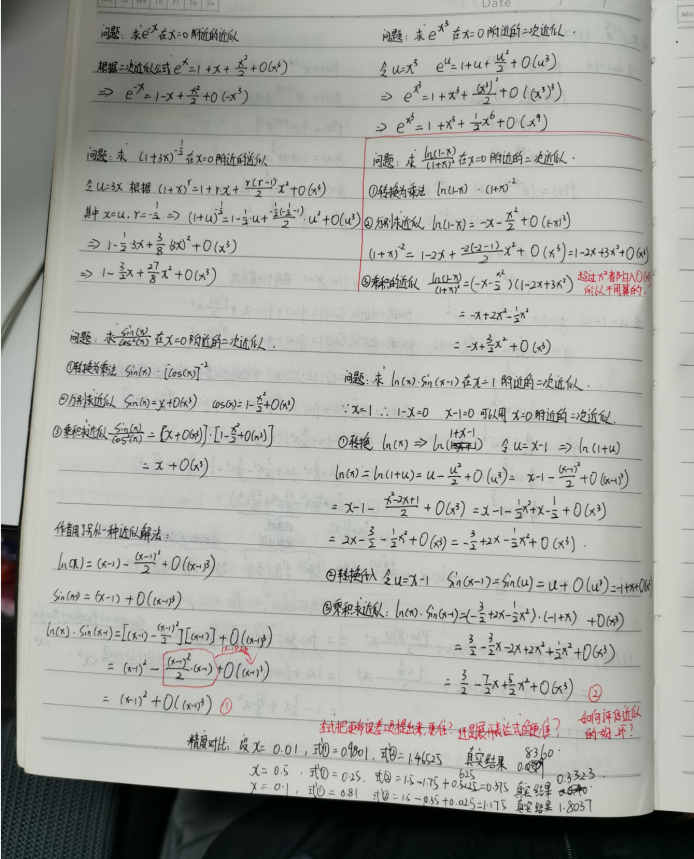 Date
问题: 求 e^{-x} 在 x=0 附近的近似
根据二次近似公式 e^x = 1 + x + x²/2 + O(x³)
⇒ e^{-x} = 1 - x + x²/2 + O(-x³)
问题: 求 e^{x³} 在 x=0 附近的二次近似.
令 u=x³ e^u = 1 + u + u²/2 + O(u³)
⇒ e^{x³} = 1 + x³ + (x³)²/2 + O((x³)³)
⇒ e^{x³} = 1 + x³ + 1/2 x⁶ + O(x⁹)
问题: 求 (1+3x)^{-1/2} 在 x=0 附近的近似
令 u=3x 根据 (1+x)^r = 1 + r·x + r(r-1)/2 x² + O(x³)
其中 x=u, r=-1/2 ⇒ (1+u)^{-1/2} = 1 - 1/2·u + -1/2(-1/2-1)/2·u² + O(u³)
⇒ 1 - 1/2·3x + 3/8 (3x)² + O(x³)
⇒ 1 - 3/2 x + 27/8 x² + O(x³)
问题: 求 ln(1-x)/(1+x)² 在 x=0 附近的二次近似.
①转换为乘法 ln(1-x)·(1+x)^{-2}
②分别求近似 ln(1-x) = -x - x²/2 + O(-x³)
(1+x)^{-2} = 1 - 2x + -2(-2-1)/2 x² + O(x³) = 1-2x+3x²+O(x³)
③乘积的近似 ln(1-x)/(1+x)² = (-x - x²/2)(1-2x+3x²)
超过x²者归入O(x³)
所以不用算的.
= -x + 2x² - 1/2 x²
= -x + 3/2 x² + O(x³)
问题: 求 sin(x)/cos²(x) 在 x=0 附近的二次近似.
①转换为乘法 sin(x)·[cos(x)]^{-2}
②分别求近似 sin(x) = x+O(x³) cos(x) = 1 - x²/2 + O(x³)
③乘积求近似 sin(x)/cos²(x) = [x+O(x³)]·[1 - x²/2 + O(x³)]
= x + O(x³)
问题: 求 ln(x)·sin(x-1) 在 x=1 附近的二次近似.
∵ x=1 ∴ 1-x=0 x-1=0 可以用 x=0 附近的二次近似.
①转换 ln(x) ⇒ ln(1+x-1) 令 u=x-1 ⇒ ln(1+u)
ln(x) = ln(1+u) = u - u²/2 + O(u³) = x-1 - (x-1)²/2 + O((x-1)³)
= x-1 - x²-2x+1/2 + O(x³) = x-1 - 1/2 x² + x - 1/2 + O(x³)
= 2x - 3/2 - 1/2 x² + O(x³) = -3/2 + 2x - 1/2 x² + O(x³).
②转换 令 u=x-1 sin(x-1) = sin(u) = u + O(u³) = -1+x+O(x³)
③乘积求近似: ln(x)·sin(x-1) = (-3/2 + 2x - 1/2 x²)·(-1+x) + O(x³)
= 3/2 - 3/2 x - 2x + 2x² + 1/2 x² + O(x³)
= 3/2 - 7/2 x + 5/2 x² + O(x³) ②
另一种近似解法:
ln(x) = (x-1) - (x-1)²/2 + O((x-1)³)
sin(x-1) = (x-1) + O((x-1)³)
ln(x)·sin(x-1) = [(x-1) - (x-1)²/2][(x-1)] + O((x-1)³)
= (x-1)² - (x-1)²/2·(x-1) + O((x-1)³)
= (x-1)² + O((x-1)³) ①
还是展开表达式的更准?
如何评估近似
的好坏?
精度对比: 设 x = 0.01, 式① = 0.9801, 式② = 1.46525 真实结果
x = 0.5, 式① = 0.25, 式② = 1.5-1.75+0.625=0.375 真实结果 0.3323
x = 0.1, 式① = 0.81 式② = 1.5-0.35+0.025=1.175 真实结果 1.8037